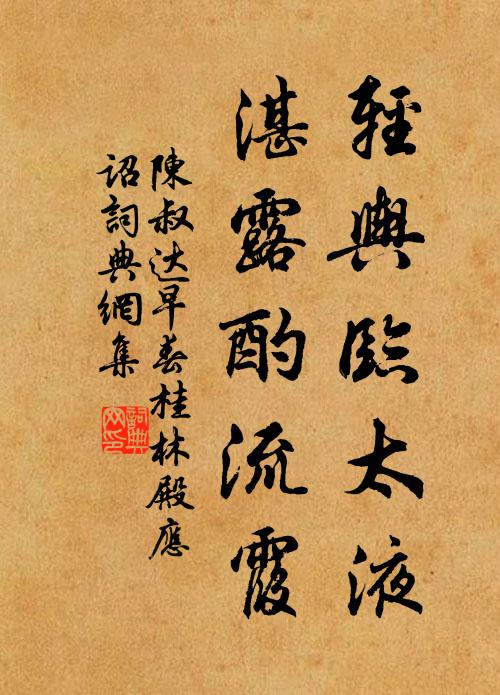 輕輿臨太液
湛露酌流霞
陳叔达早春桂林殿應
詔詞典網集
詞典
网印